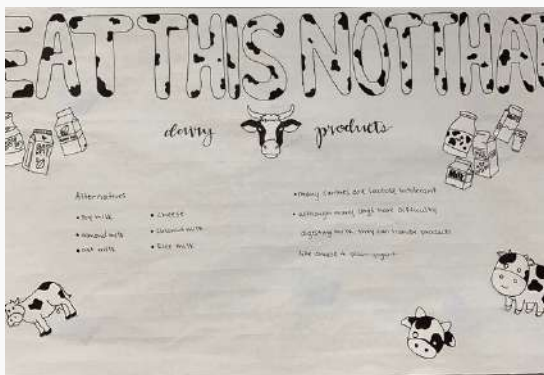 EAT THIS NOT THAT
dairy products
Alternatives
• soy milk
• almond milk
• oat milk
• cheese
• coconut milk
• rice milk
• many canines are lactose intolerant
• although many dogs have difficulty
digesting milk they can handle products
like cheese & plain yogurt
MILK